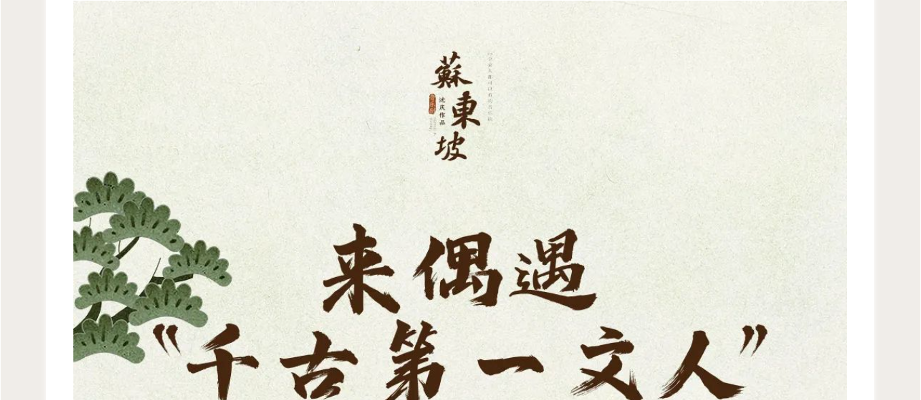 蘇東坡
沈庆作品
来偶遇
“千古第一文人”